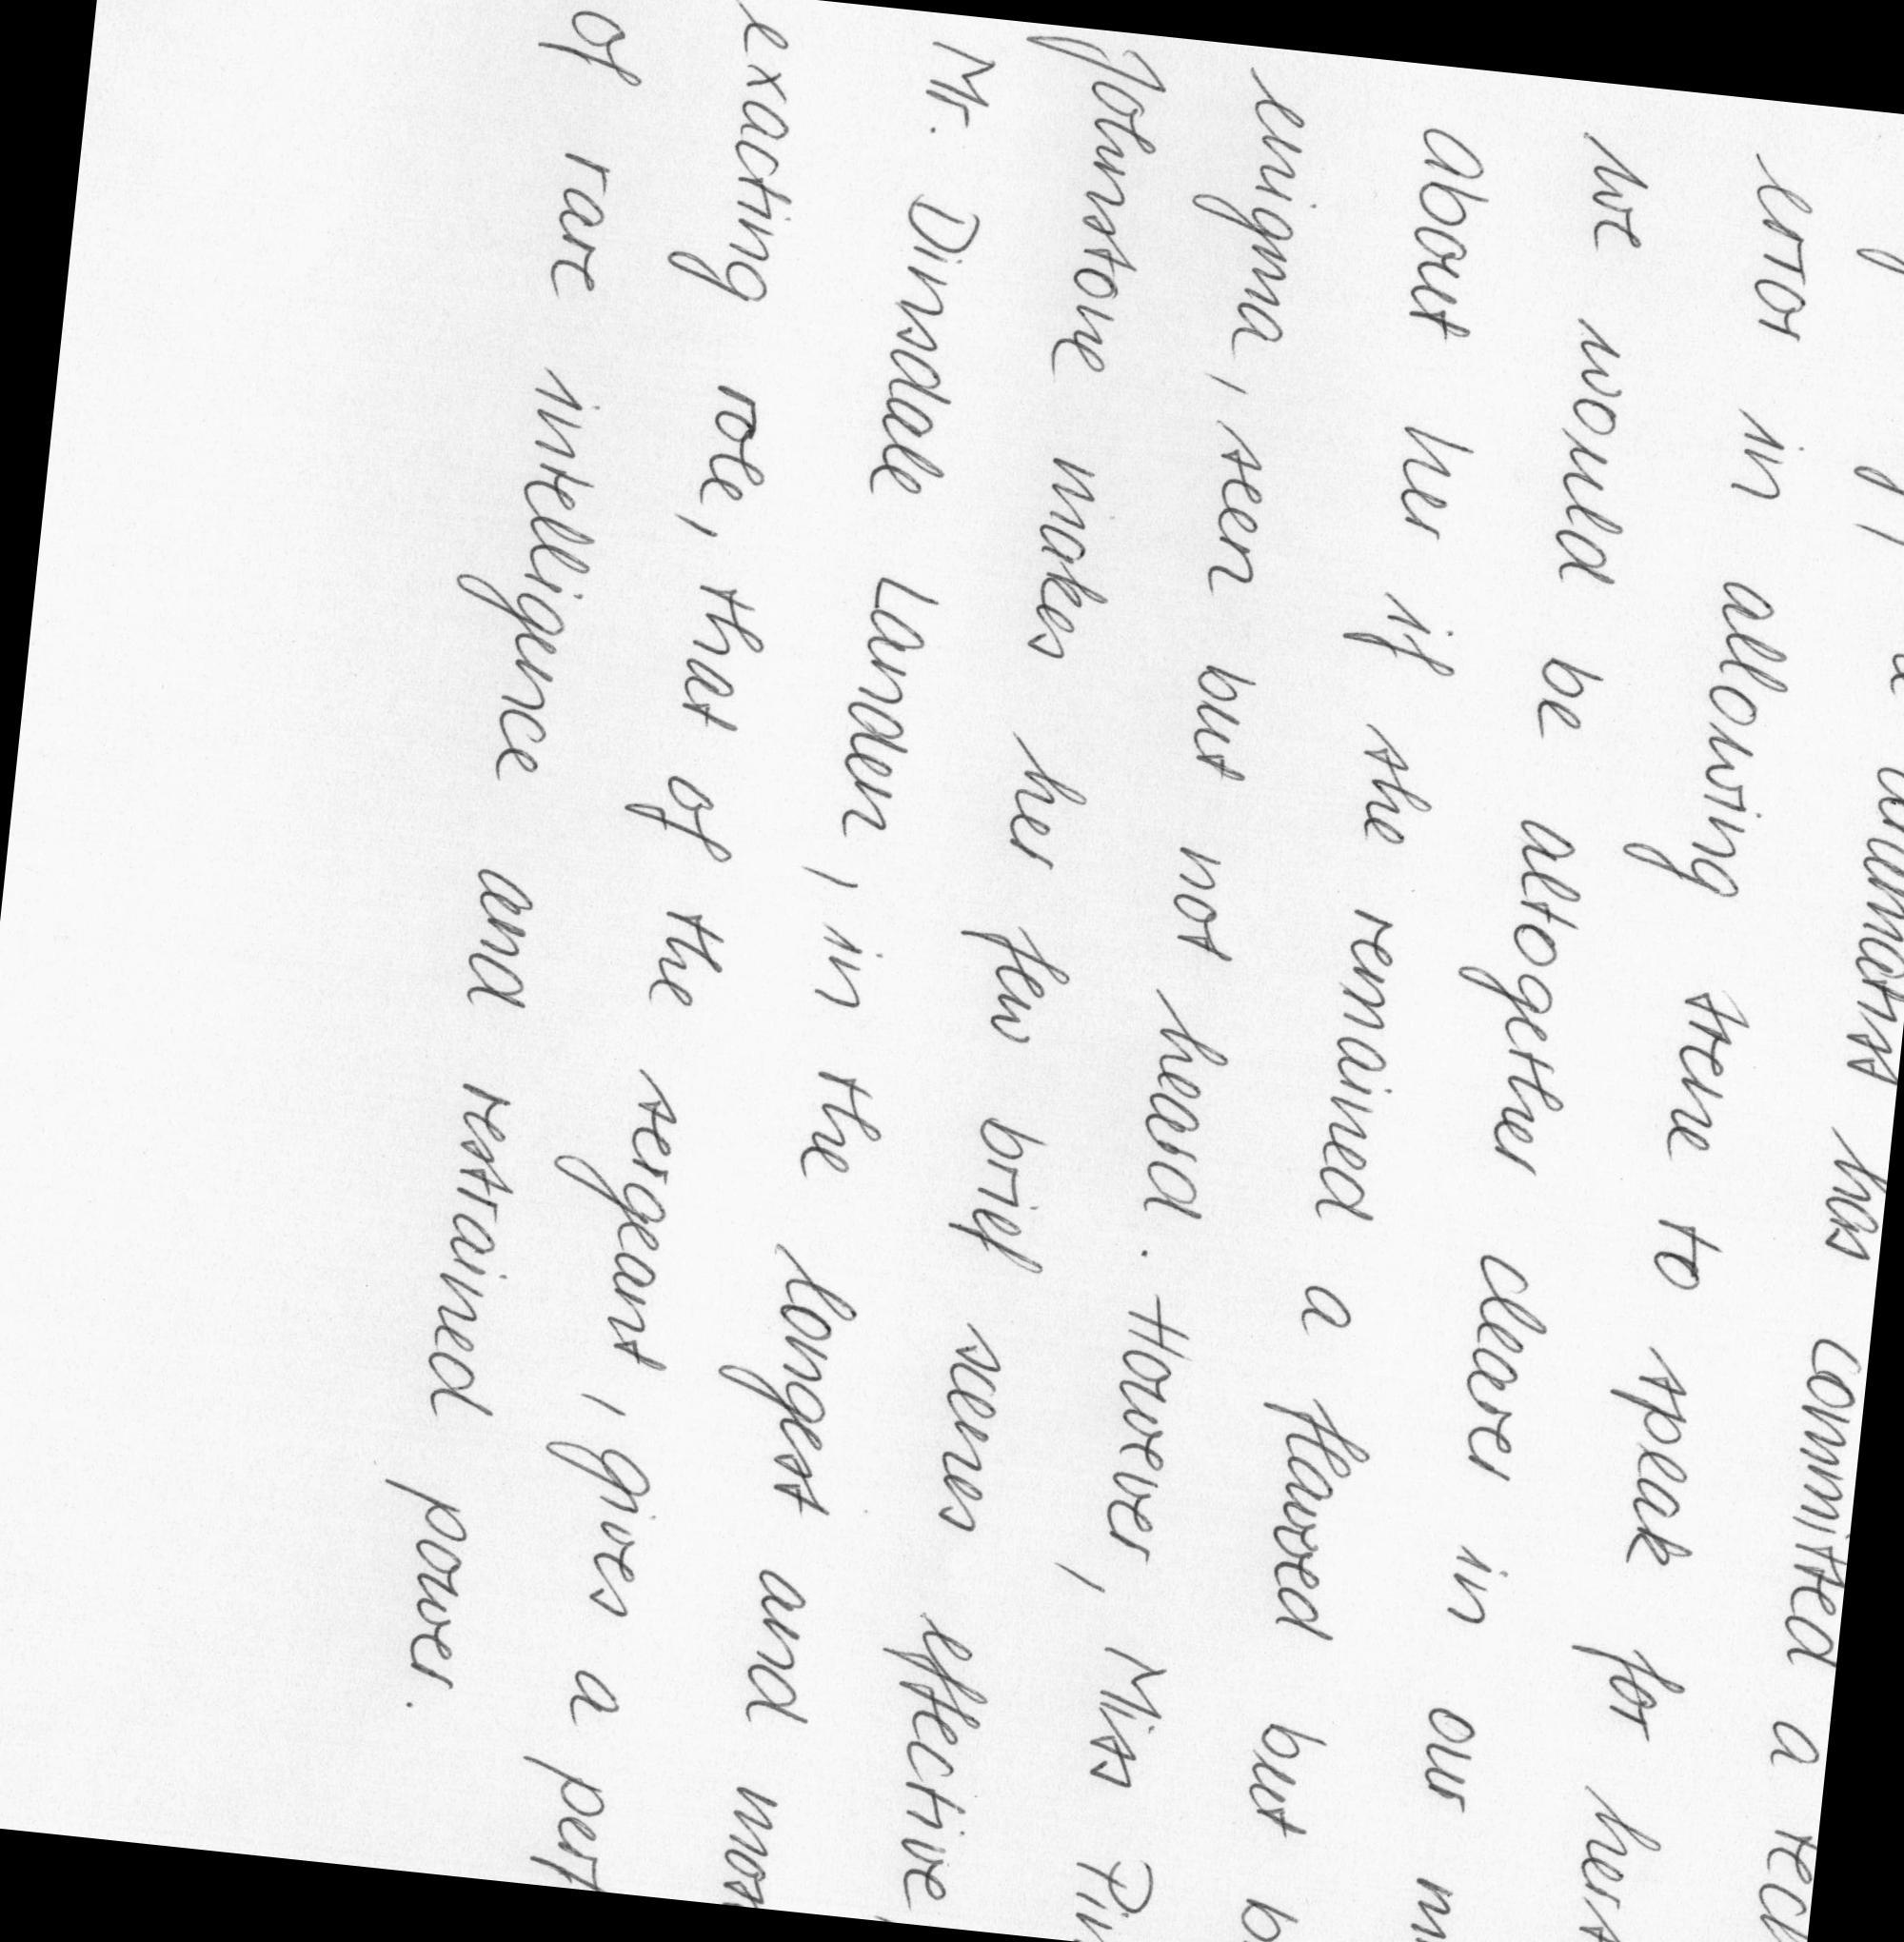 dramatist has committed a
error in allowing Irene to speak for
we would be altogether clearer in our
about her if she remained a flawed but
enigma, seen but not heard. However, Miss
Johnstone makes her few brief scenes effective,
Mr. Dinsdale Landen, in the longest and most
exacting role, that of the sergeant, gives a
of rare intelligence and restrained power.